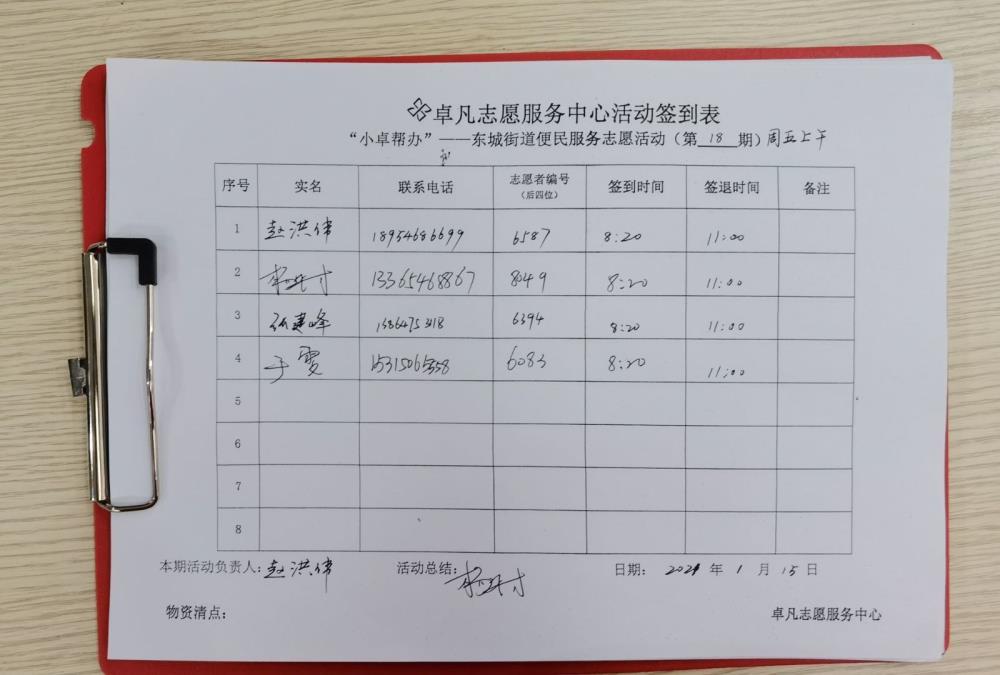 卓凡志愿服务中心活动签到表
“小卓帮办”——东城街道便民服务志愿活动（第 18 期）周五上午
序号 实名 联系电话 志愿者编号（后四位） 签到时间 签退时间 备注
1 赵洪伟 18954686699 6587 8:20 11:00
2 13365468867 8049 8:20 11:00
3 张建峰 6394 8:20 11:00
4 于霞 6083 8:20 11:00
5
6
7
8
本期活动负责人：赵洪伟 活动总结： 日期： 2021 年 1 月 15 日
物资清点： 卓凡志愿服务中心